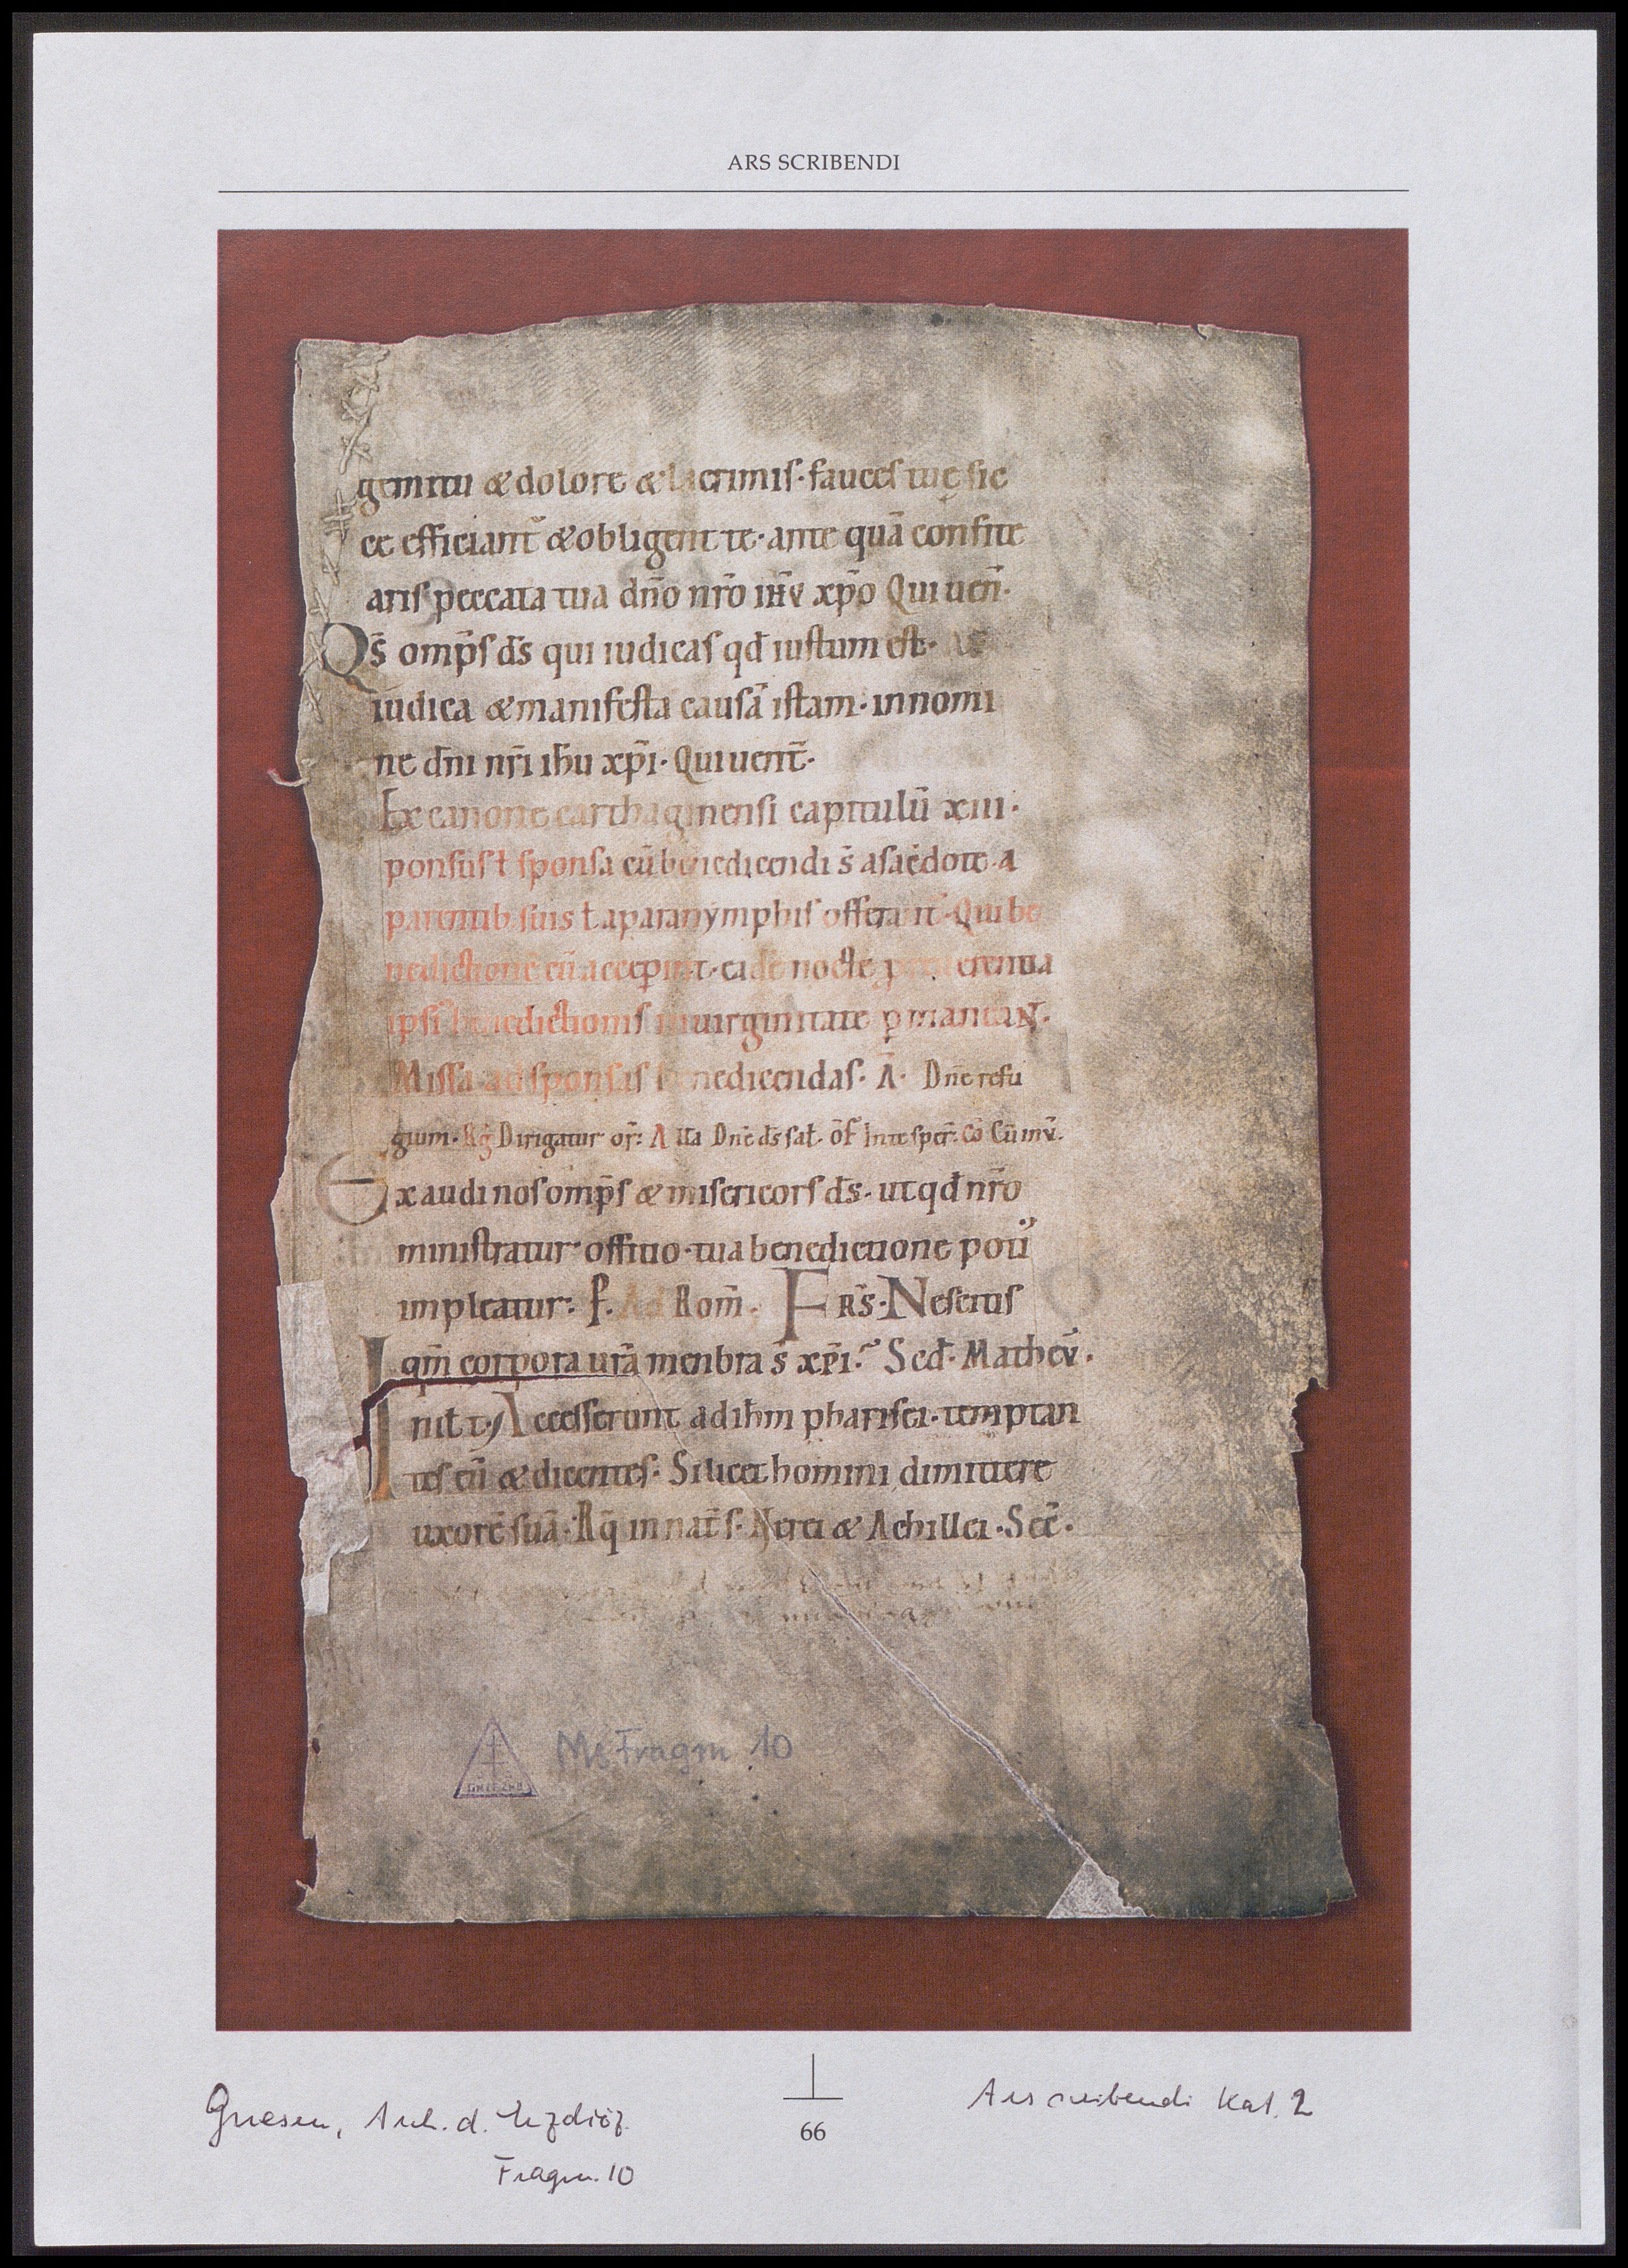 ARS SCRIBENDI
gemitu & dolore & lacrimis· fauces tuę sic
ce efficiant̄ & obligent te· ante quā confite
aris peccata tua dn̄o nr̄o ihv̄ xp̄o Qui uen̄·
Qs̄ omp̄s ds̄ qui iudicas qđ iustum est·
iudica & manifesta causā istam· innomi
ne dn̄i nr̄i ihu xp̄i· Qui uent̄·
Ex canone carthaginensi capitulū xiii·
ponsus ł sponsa cū benedicendi s̄ a sacdote· a
parentib suis ł a paranymphis offerant̄· Qui be
nedictionē cū acceperint· eadē nocte erentia
ipsi benedictionis in uirginitate pmaneaN·
Missa ad sponsas benedicendas· A̅· Dn̄e refu
gium· Rq̄ Dirigatur or̄: A lła Dn̄e ds̄ sał· of̄ In te sper̄· Cō Cū inv̄·
Exaudi nos omp̄s & misericors ds̄· ut qđ nr̄o
ministratur offitio· tua benedictione poti᾽
impleatur: f. Ad Rom̄. FRS̄· Nescitis
qm̄ corpora urā menbra s̄ xp̄i· Scđ· Mathev̄·
In it t· Accesserunt ad ihm pharisei· temptan
tes eū & dicentes· Si licet homini dimittere
uxorē suā· Rq̄ in nat̄ s· Nerei & Achillei· Sec̄·
GNIEZNO
Ms. Fragm 10
66
Gnesen, Arch. d. Erzdiöz.
Fragm. 10
Ars scribendi Kat. 2